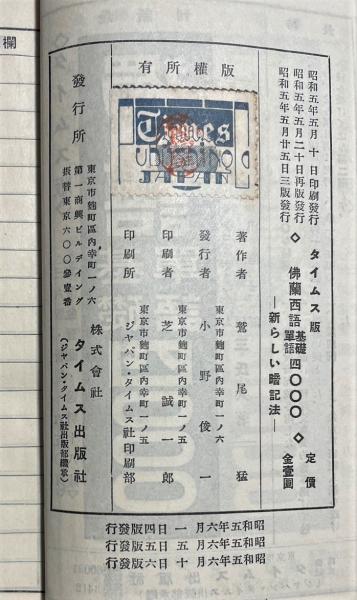 版權所有
Times
JAPAN
昭和五年五月十日印刷發行
昭和五年五月二十日再版發行
昭和五年五月廿五日三版發行
タイムス版
◇ 佛蘭西語 基礎單語 四〇〇〇 ◇
―新らしい暗記法―
定價
金壹圓
著作者 鷲尾猛
東京市麹町區內幸町一ノ六
發行者 小野俊一
東京市麹町區內幸町一ノ五
印刷者 芝誠一郎
東京市麹町區內幸町一ノ五
印刷所 ジャパン・タイムス社印刷部
發行所
東京市麹町區內幸町一ノ六
第一商興ビルデイング
振替東京六〇〇參壹番
株式會社
タイムス出版社
(ジャパン・タイムス社出版部繼承)
昭和五年六月一日四版發行
昭和五年六月五日五版發行
昭和五年六月十日六版發行
欄